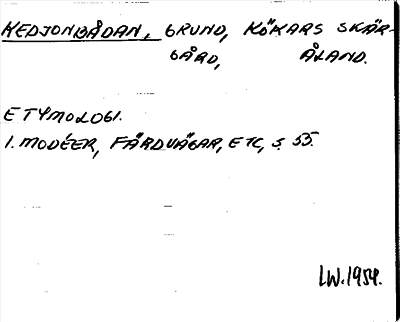 KEDJONBÅDAN, GRUND, KÖKARS SKÄR-
GÅRD, ÅLAND.
ETYMOLOGI.
1. MODÉER, FÄRDVÄGAR, ETC, S. 55.
LW. 1954.